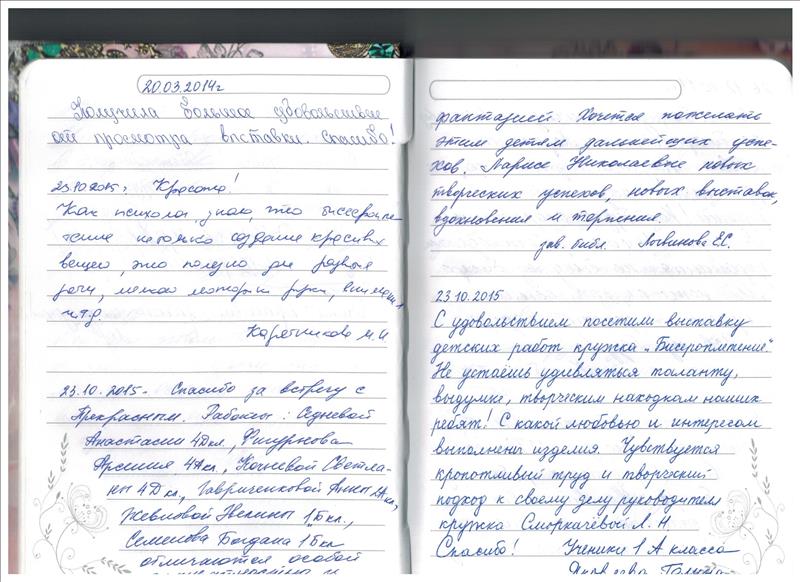 20.03.2014г
Получила большое удовольствие
от просмотра выставки. Спасибо!
23.10.2015г. Красота!
Как психолог, знаю, что бисеропле-
тение не только создание красивых
вещей, это полезно для развития
речи, мелкой моторики руки, внимания
и т.д.
М.И
23.10.2015г. Спасибо за встречу с
Прекрасным. Работы: Седневой
Анастасии 4Д кл.,
Арсения 4А кл., Кочневой Светла-
ны 4Д кл., Гавриченковой Анны 2А кл.,
1Б кл.,
Семенова Богдана 1Б кл
отличаются особой
фантазией. Хочется пожелать
этим детям дальнейших успе-
хов. Ларисе Николаевне новых
творческих успехов, новых выставок,
вдохновения и терпения.
зав. библ. Логвинова Е.С.
23.10.2015
С удовольствием посетили выставку
детских работ кружка „Бисероплетение".
Не устаёшь удивляться таланту,
выдумке, творческим находкам наших
ребят! С какой любовью и интересом
выполнены изделия. Чувствуется
кропотливый труд и творческий
подход к своему делу руководителя
кружка Сморкачёвой Л. Н
Спасибо! Ученики 1 А класса